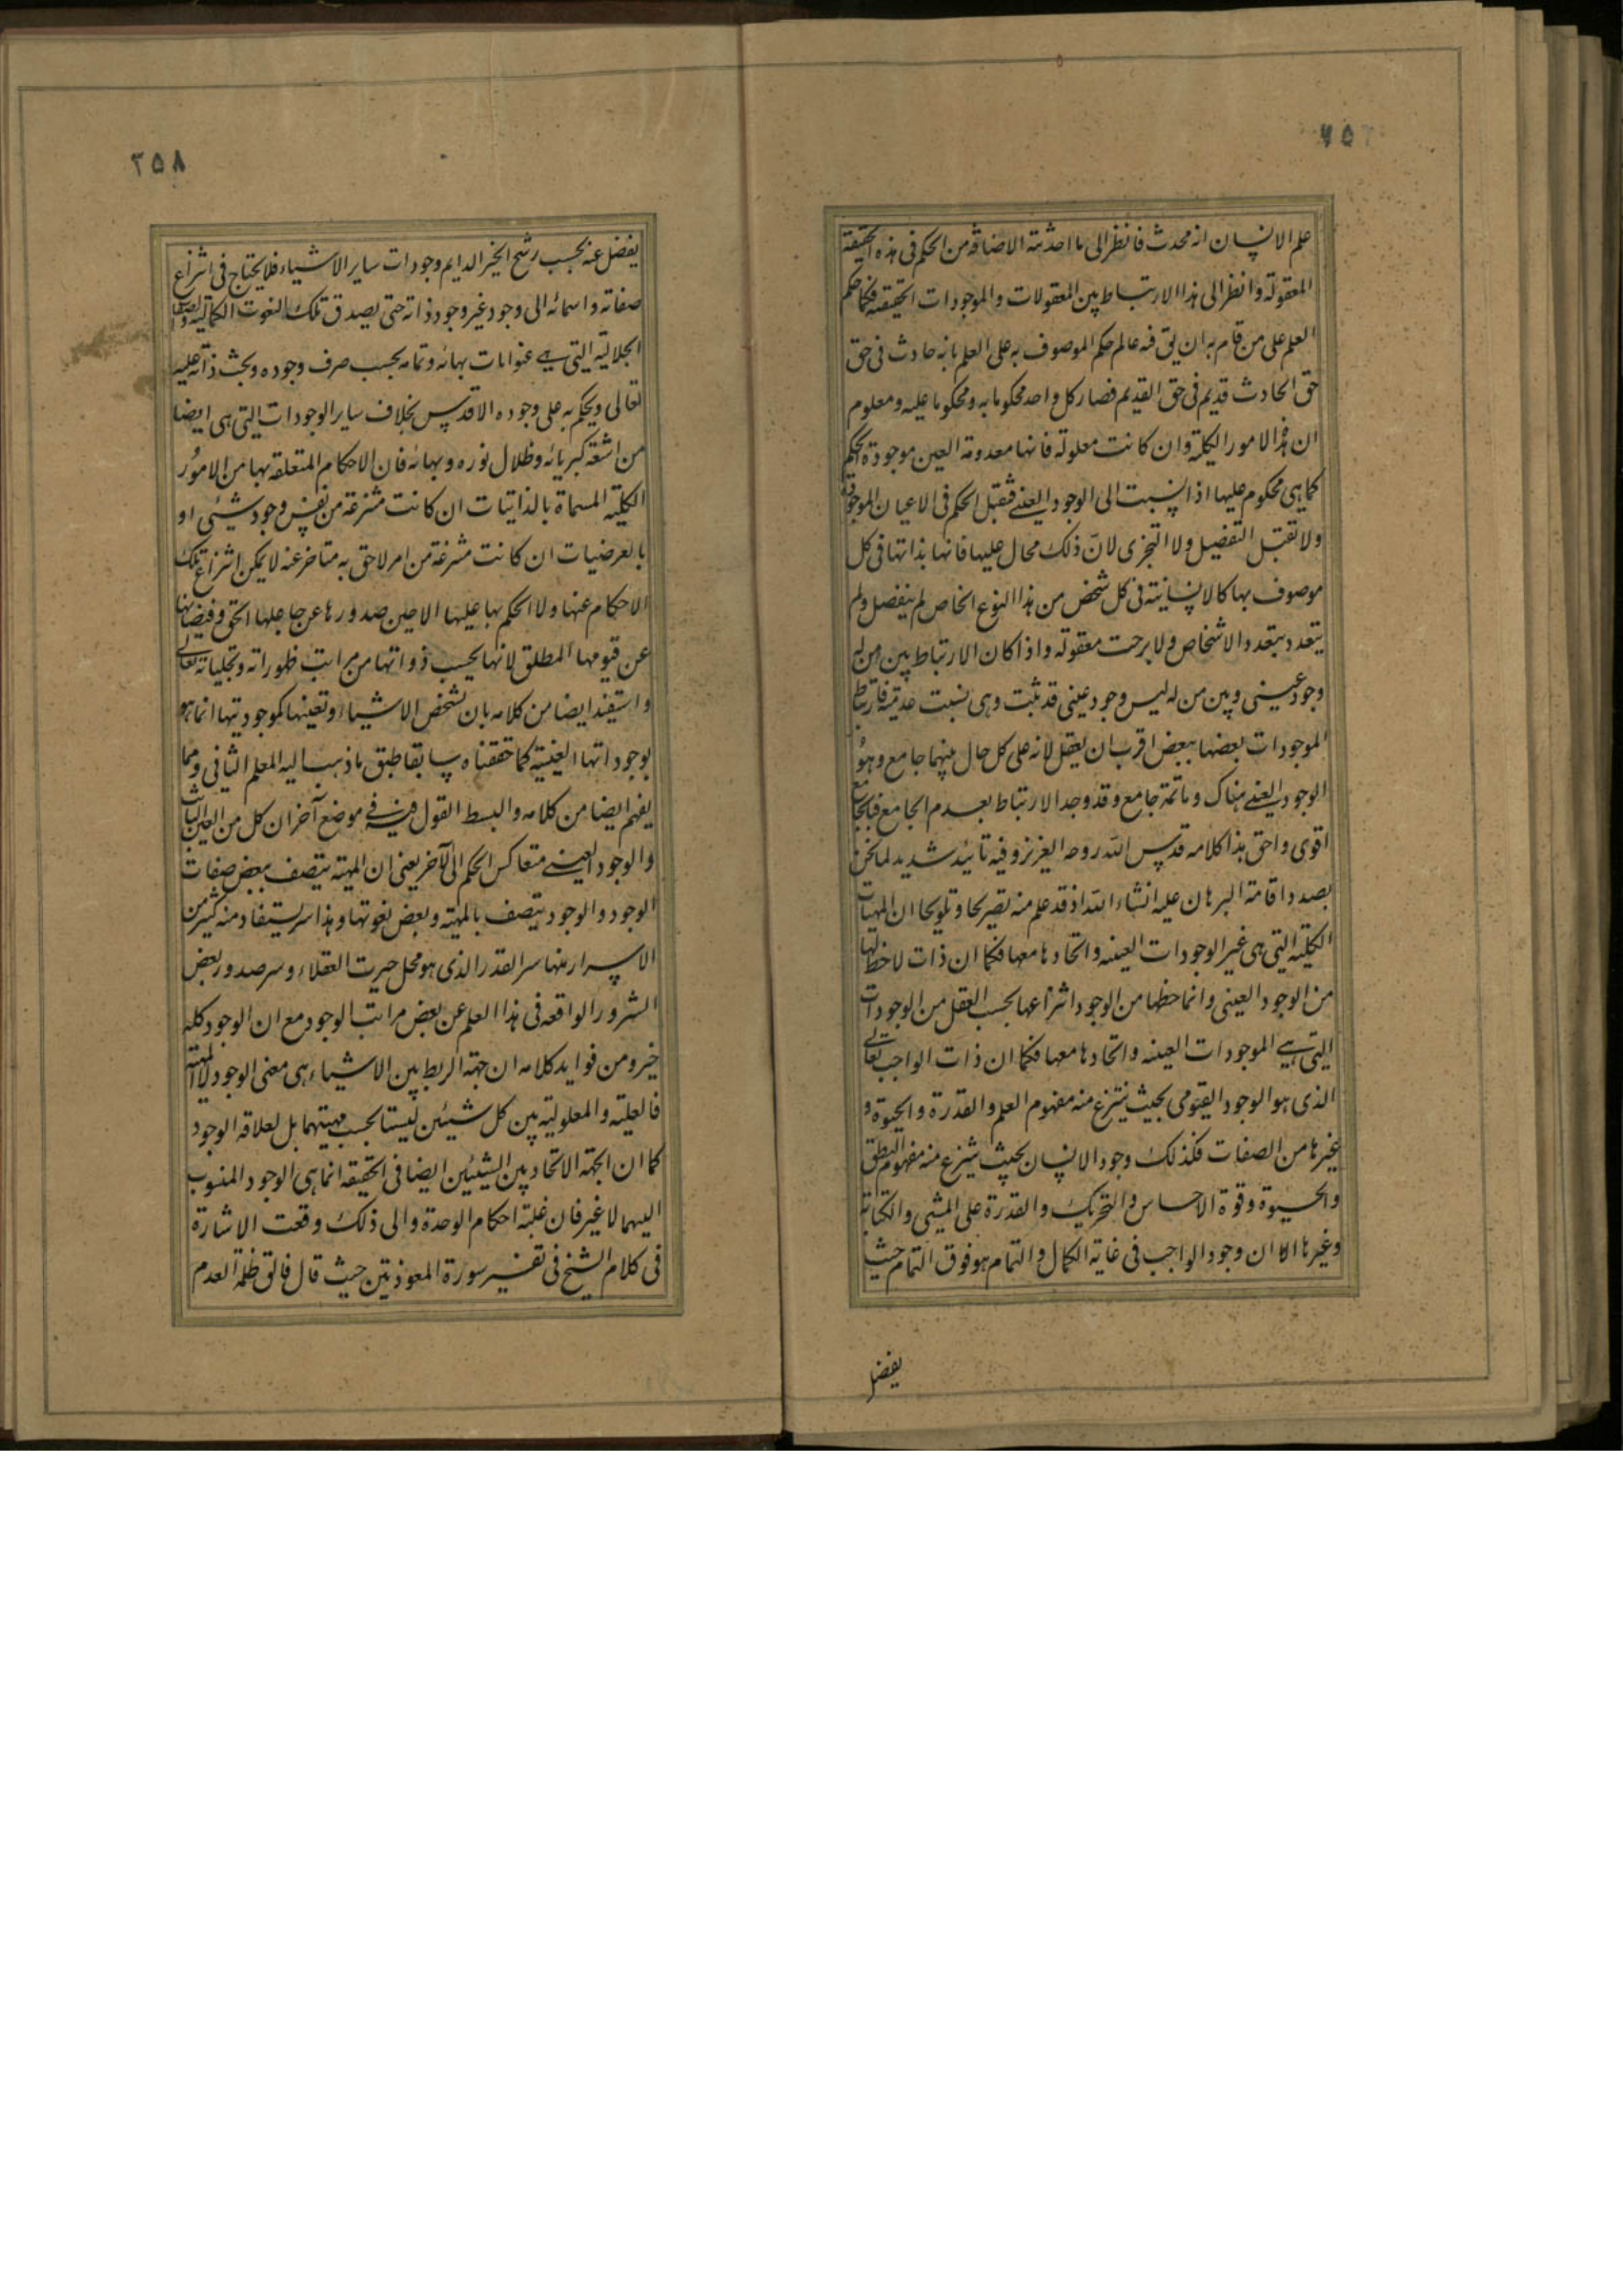 ۲۵۲
علم الانسان انه محدث فانظر الى ما احدثته الاضافة من الحكم فى هذه الحقيقة
المعقولة وانظر الى هذا الارتباط بين المعقولات والموجودات الحقيقه فكما حكم
العلم على من قام به ان يق فيه عالم حكم الموصوف به على العلم بانه حادث فى حق
حق الحادث قديم فى حق القديم فصار كل واحد محكوما به ومحكوما عليه ومعلوم
ان هذه الامور الكلية وان كانت معلولة فانها معدومة العين موجودة الحكم
كما هى محكوم عليها اذا نسبت الى الوجود العينى فتقبل الحكم فى الاعيان الموجودة
ولا تقبل التفصيل ولا التجزى لانّ ذلك محال عليها فانها بذاتها فى كل
موصوف بها كالانسانية فى كل شخص من هذا النوع الخاص لم ينفصل ولم
يتعدد بتعدد الاشخاص ولا برحت معقولة واذا كان الارتباط بين من له
وجود عينى وبين من له ليس وجود عينى قد ثبت وهى نسبت عدمية فارتباط
الموجودات بعضها ببعض اقرب ان يعقل لانه على كل حال بينهما جامع وهو
الوجود العينى هناك وما ثمة جامع وقد وجد الارتباط بعدم الجامع فبالجامع
اقوى واحق هذا كلامه قدس الله روحه العزيز وفيه تائيد شديد لما نحن
بصدد اقامة البرهان عليه انشاء الله اذ قد علم منه تصريحا وتلويحا ان المهيات
الكلية التى هى غير الوجودات العينه واتحادها معها فكما ان ذات لا حظ لها
من الوجود العينى وانما حظها من الوجود انتزاعها بحسب العقل من الوجودات
التى هى الموجودات العينه واتحادها معها فكما ان ذات الواجب تعالى
الذى هو الوجود القيومى بحيث ينتزع منه مفهوم العلم والقدرة والحيوة و
غيرها من الصفات فكذلك وجود الانسان بحيث ينتزع منه مفهوم النطق
والحيوة وقوة الاحساس والتحريك والقدرة على المشى والكتابة
وغيرها الا ان وجود الواجب فى غاية الكمال والتمام هو فوق التمام حيث
يفضل
۲۵۸
يفضل عنه بحسب رشح الخير الدايم وجودات ساير الاشياء فلا يحتاج فى انتزاع
صفاته واسمائه الى وجود غير وجود ذاته حتى يصدق تلك النعوت الكمالية والصفات
الجلالية التى هى عنوانات بهائه وتمامه بحسب صرف وجوده وبحت ذاته عليه
تعالى ويحكم به على وجوده الاقدس بخلاف ساير الوجودات التى هى ايضا
من اشعة كبريائه وظلال نوره وبهائه فان الاحكام المتعلقه بها من الامور
الكلية المسماة بالذاتيات ان كانت منتزعة من نفس وجود شىء او
بالعرضيات ان كانت منتزعة من امر لاحق به متاخر عنه لا يمكن انتزاع تلك
الاحكام عنها ولا الحكم بها عليها الا حين صدورها عن جاعلها الحق وفيضانها
عن قيومها المطلق لانها بحسب ذواتها من مراتب ظهوراته وتجلياته تعالى
واستفيد ايضا من كلامه بان تشخص الاشياء وتعينها كموجوديتها انما هو
بوجوداتها العينية كما حققناه سابقا طبق ما ذهب اليه المعلم الثانى ومما
يفهم ايضا من كلامه والبسط القول فيه فى موضع آخر ان كل من العين الثابت
والوجود العينى متعاكس الحكم الى الآخر يعنى ان المهية يتصف ببعض صفات
الوجود والوجود يتصف بالمهية وبعض نعوتها وهذا سر يستفاد منه كثير من
الاسرار منها سر القدر الذى هو محل حيرت العقلاء وسر صدور بعض
الشرور الواقعه فى هذا العلم عن بعض مراتب الوجود مع ان الوجود كله
خير ومن فوايد كلامه ان جهة الربط بين الاشياء هى معنى الوجود لا المهية
فالعلية والمعلولية بين كل شيئين ليستا بحسب مهيتهما بل لعلاقة الوجود
كما ان الجهة الاتحاد بين الشيئين ايضا فى الحقيقه انما هى الوجود المنسوب
اليهما لا غير فان غلبة احكام الوحدة والى ذلك وقعت الاشارة
فى كلام الشيخ فى تفسير سورة المعوذتين حيث قال فالق ظلمة العدم